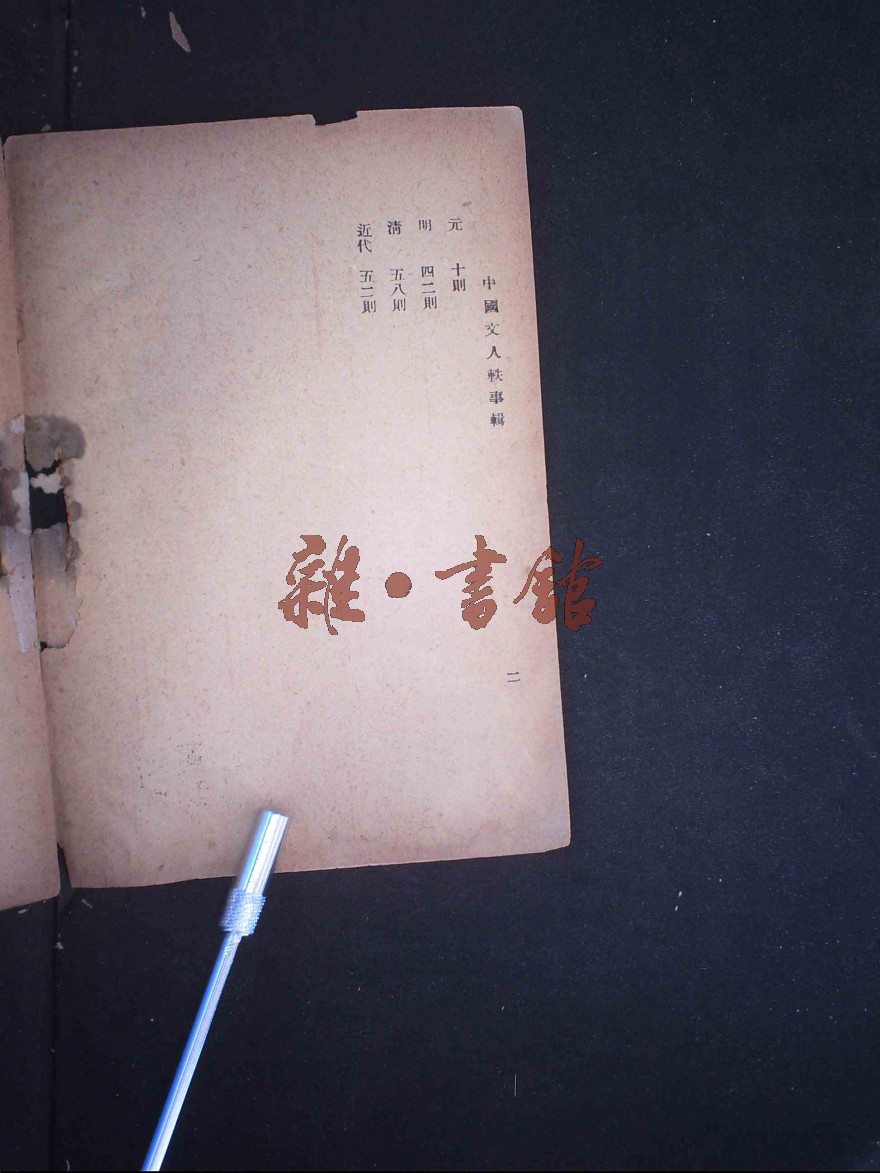 中國文人軼事輯
元　十則
明　四二則
清　五八則
近代　五二則
二
雜·書館